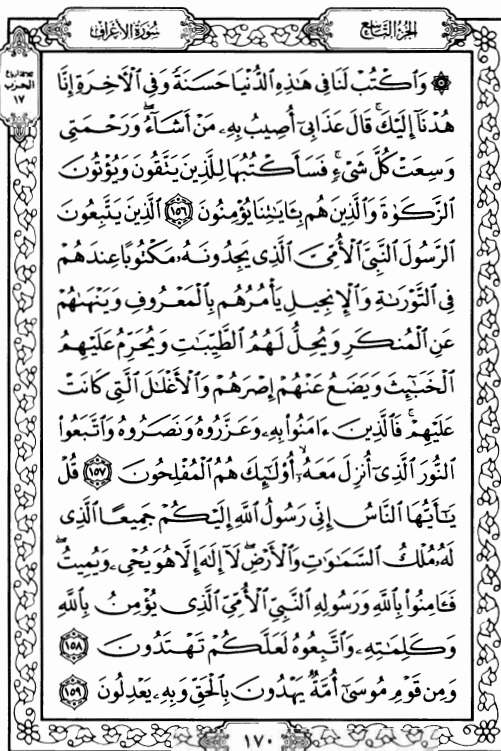 سُورَةُ الأَعْرَافِ
الجُزْءُ التَّاسِعُ
الحزب
١٧
۞ وَٱكۡتُبۡ لَنَا فِي هَٰذِهِ ٱلدُّنۡيَا حَسَنَةٗ وَفِي ٱلۡأٓخِرَةِ إِنَّا
هُدۡنَآ إِلَيۡكَۚ قَالَ عَذَابِيٓ أُصِيبُ بِهِۦ مَنۡ أَشَآءُۖ وَرَحۡمَتِي
وَسِعَتۡ كُلَّ شَيۡءٖۚ فَسَأَكۡتُبُهَا لِلَّذِينَ يَتَّقُونَ وَيُؤۡتُونَ
ٱلزَّكَوٰةَ وَٱلَّذِينَ هُم بِـَٔايَٰتِنَا يُؤۡمِنُونَ ١٥٦ ٱلَّذِينَ يَتَّبِعُونَ
ٱلرَّسُولَ ٱلنَّبِيَّ ٱلۡأُمِّيَّ ٱلَّذِي يَجِدُونَهُۥ مَكۡتُوبًا عِندَهُمۡ
فِي ٱلتَّوۡرَىٰةِ وَٱلۡإِنجِيلِ يَأۡمُرُهُم بِٱلۡمَعۡرُوفِ وَيَنۡهَىٰهُمۡ
عَنِ ٱلۡمُنكَرِ وَيُحِلُّ لَهُمُ ٱلطَّيِّبَٰتِ وَيُحَرِّمُ عَلَيۡهِمُ
ٱلۡخَبَٰٓئِثَ وَيَضَعُ عَنۡهُمۡ إِصۡرَهُمۡ وَٱلۡأَغۡلَٰلَ ٱلَّتِي كَانَتۡ
عَلَيۡهِمۡۚ فَٱلَّذِينَ ءَامَنُواْ بِهِۦ وَعَزَّرُوهُ وَنَصَرُوهُ وَٱتَّبَعُواْ
ٱلنُّورَ ٱلَّذِيٓ أُنزِلَ مَعَهُۥٓ أُوْلَٰٓئِكَ هُمُ ٱلۡمُفۡلِحُونَ ١٥٧ قُلۡ
يَٰٓأَيُّهَا ٱلنَّاسُ إِنِّي رَسُولُ ٱللَّهِ إِلَيۡكُمۡ جَمِيعًا ٱلَّذِي
لَهُۥ مُلۡكُ ٱلسَّمَٰوَٰتِ وَٱلۡأَرۡضِۖ لَآ إِلَٰهَ إِلَّا هُوَ يُحۡيِۦ وَيُمِيتُۖ
فَـَٔامِنُواْ بِٱللَّهِ وَرَسُولِهِ ٱلنَّبِيِّ ٱلۡأُمِّيِّ ٱلَّذِي يُؤۡمِنُ بِٱللَّهِ
وَكَلِمَٰتِهِۦ وَٱتَّبِعُوهُ لَعَلَّكُمۡ تَهۡتَدُونَ ١٥٨
وَمِن قَوۡمِ مُوسَىٰٓ أُمَّةٞ يَهۡدُونَ بِٱلۡحَقِّ وَبِهِۦ يَعۡدِلُونَ ١٥٩
١٧٠